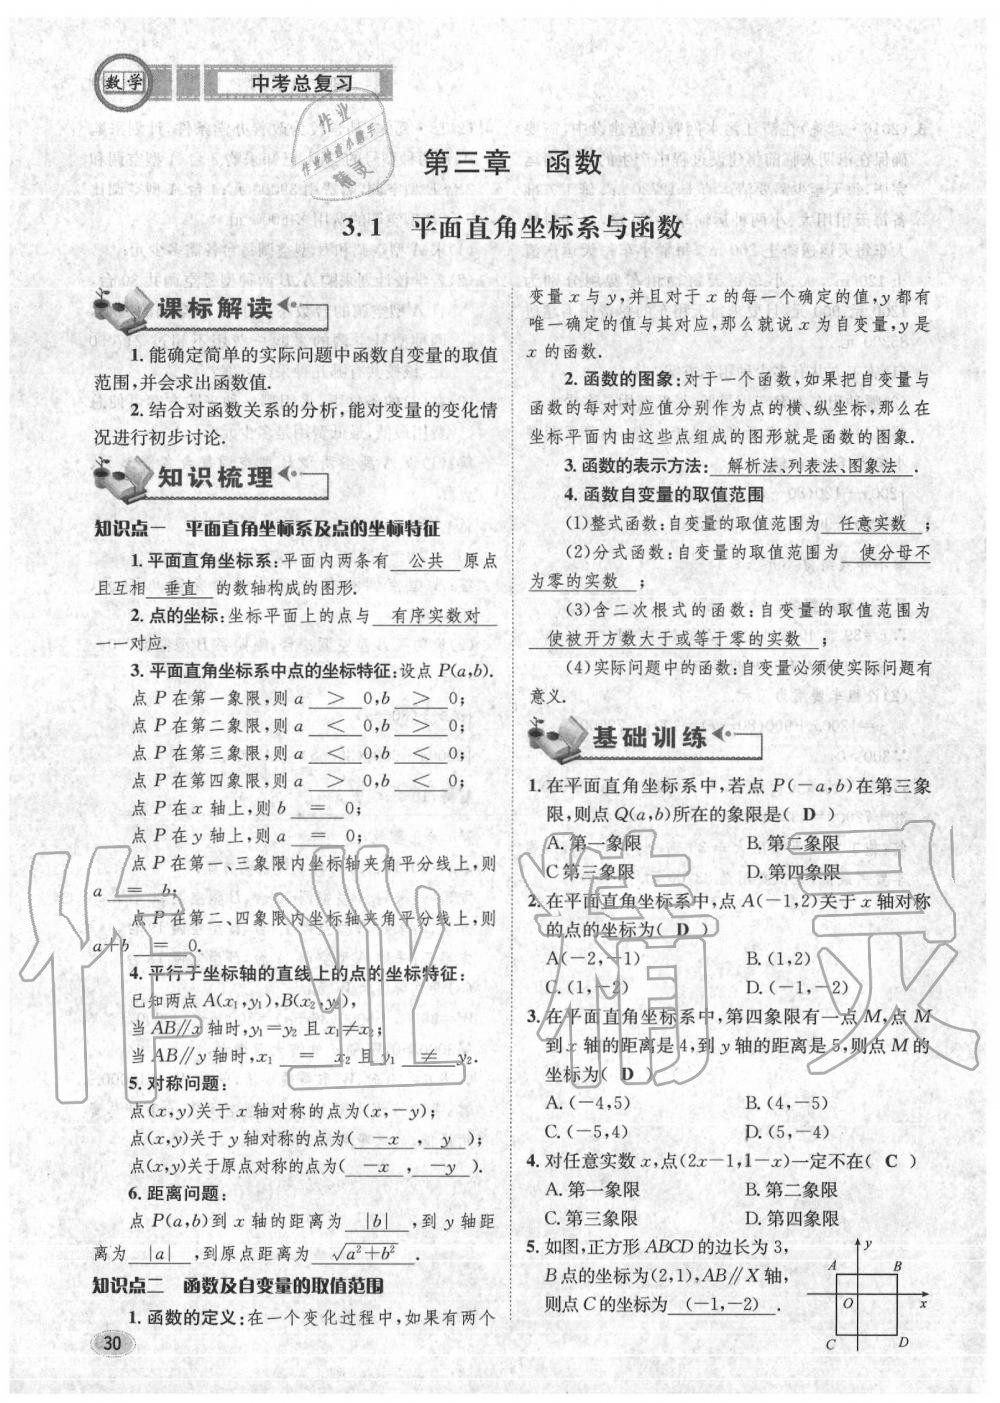 数学
中考总复习
第三章 函数
3.1 平面直角坐标系与函数
课标解读
1. 能确定简单的实际问题中函数自变量的取值
范围,并会求出函数值.
2. 结合对函数关系的分析,能对变量的变化情
况进行初步讨论.
知识梳理
知识点一 平面直角坐标系及点的坐标特征
1. 平面直角坐标系:平面内两条有 公共 原点
且互相 垂直 的数轴构成的图形.
2. 点的坐标:坐标平面上的点与 有序实数对
一一对应.
3. 平面直角坐标系中点的坐标特征:设点 P(a,b).
点 P 在第一象限,则 a > 0,b > 0;
点 P 在第二象限,则 a < 0,b > 0;
点 P 在第三象限,则 a < 0,b < 0;
点 P 在第四象限,则 a > 0,b < 0;
点 P 在 x 轴上,则 b = 0;
点 P 在 y 轴上,则 a = 0;
点 P 在第一、三象限内坐标轴夹角平分线上,则
a = b;
点 P 在第二、四象限内坐标轴夹角平分线上,则
a+b = 0.
4. 平行于坐标轴的直线上的点的坐标特征:
已知两点 A(x₁,y₁),B(x₂,y₂),
当 AB∥x 轴时,y₁=y₂ 且 x₁≠x₂;
当 AB∥y 轴时,x₁ = x₂ 且 y₁ ≠ y₂.
5. 对称问题:
点(x,y)关于 x 轴对称的点为(x,-y);
点(x,y)关于 y 轴对称的点为( -x , y );
点(x,y)关于原点对称的点为( -x , -y ).
6. 距离问题:
点 P(a,b)到 x 轴的距离为 |b| ,到 y 轴距
离为 |a| ,到原点距离为 √(a²+b²) .
知识点二 函数及自变量的取值范围
1. 函数的定义:在一个变化过程中,如果有两个
30
变量 x 与 y,并且对于 x 的每一个确定的值,y 都有
唯一确定的值与其对应,那么就说 x 为自变量,y 是
x 的函数.
2. 函数的图象:对于一个函数,如果把自变量与
函数的每对对应值分别作为点的横、纵坐标,那么在
坐标平面内由这些点组成的图形就是函数的图象.
3. 函数的表示方法: 解析法、列表法、图象法 .
4. 函数自变量的取值范围
(1)整式函数:自变量的取值范围为 任意实数 ;
(2)分式函数:自变量的取值范围为 使分母不
为零的实数 ;
(3)含二次根式的函数:自变量的取值范围为
使被开方数大于或等于零的实数 ;
(4)实际问题中的函数:自变量必须使实际问题有
意义.
基础训练
1. 在平面直角坐标系中,若点 P(-a,b)在第三象
限,则点 Q(a,b)所在的象限是( D )
A. 第一象限 B. 第二象限
C 第三象限 D. 第四象限
2. 在平面直角坐标系中,点 A(-1,2)关于 x 轴对称
的点的坐标为( D )
A(-2,-1) B. (1,2)
C. (1,-2) D. (-1,-2)
3. 在平面直角坐标系中,第四象限有一点 M,点 M
到 x 轴的距离是 4,到 y 轴的距离是 5,则点 M 的
坐标为( D )
A. (-4,5) B. (4,-5)
C. (-5,4) D. (5,-4)
4. 对任意实数 x,点(2x-1,1-x)一定不在( C )
A. 第一象限 B. 第二象限
C. 第三象限 D. 第四象限
5. 如图,正方形 ABCD 的边长为 3,
B 点的坐标为(2,1),AB∥X 轴,
则点 C 的坐标为 (-1,-2) .
y
A B
O x
C D
作业
作业检查小助手
精灵
作业精灵